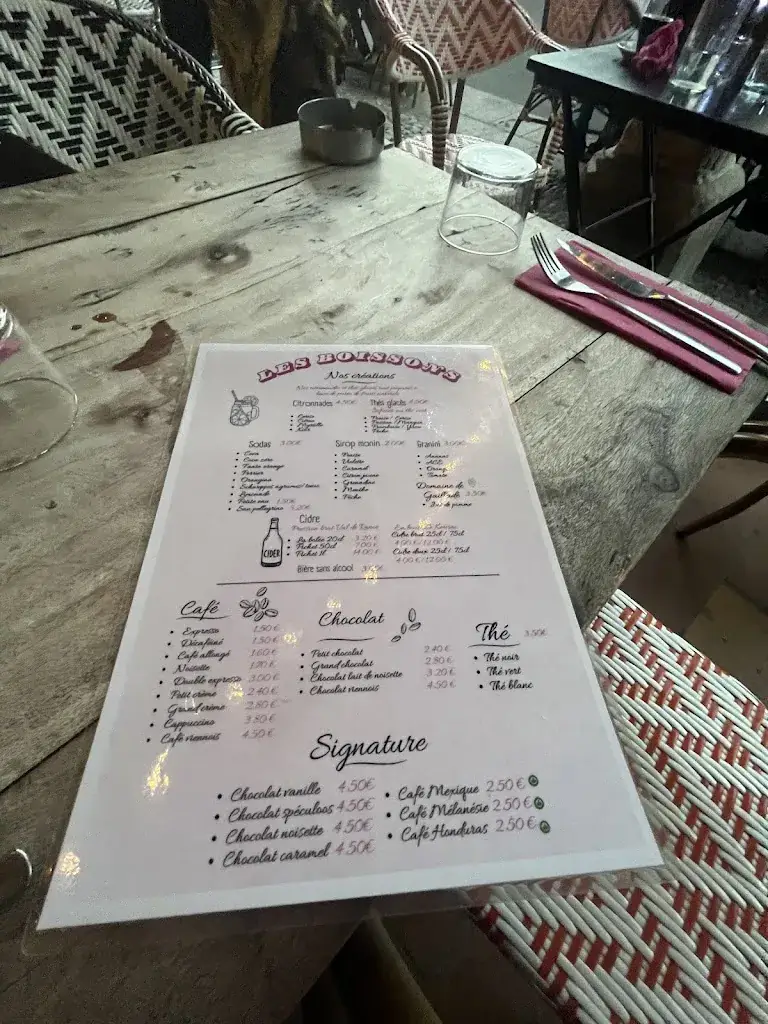 LES BOISSONS
Nos créations
Citronnades 4.50€
Thés glacés
Sodas 3.00€
Coca
Coca zéro
Fanta orange
Perrier
Orangina
Limonade
Petite eau 1.50€
San pellegrino
Sirop monin 2.00€
Fraise
Violette
Caramel
Citron jaune
Grenadine
Menthe
Pêche
Granini 3.00€
Ananas
ACE
Orange
Tomate
Domaine de
Gaillade 3.50€
Jus de pomme
Cidre
CIDER
La bolée 20cl 3.20€
Pichet 50cl 7.00€
Pichet 1l 14.00€
Cidre brut 25cl / 75cl
4.00€/12.00€
Cidre doux 25cl / 75cl
4.00€/12.00€
Bière sans alcool
Café
Expresso 1.50€
Décaféiné 1.50€
Café allongé 1.60€
Noisette 1.70€
Double expresso 3.00€
Petit crème 2.40€
Grand crème 2.80€
Cappuccino 3.80€
Café viennois 4.50€
Chocolat
Petit chocolat 2.40€
Grand chocolat 2.80€
Chocolat lait de noisette 3.20€
Chocolat viennois 4.50€
Thé 3.50€
Thé noir
Thé vert
Thé blanc
Signature
Chocolat vanille 4.50€
Chocolat spéculoos 4.50€
Chocolat noisette 4.50€
Chocolat caramel 4.50€
Café Mexique 2.50€
Café Mélanésie 2.50€
Café Honduras 2.50€